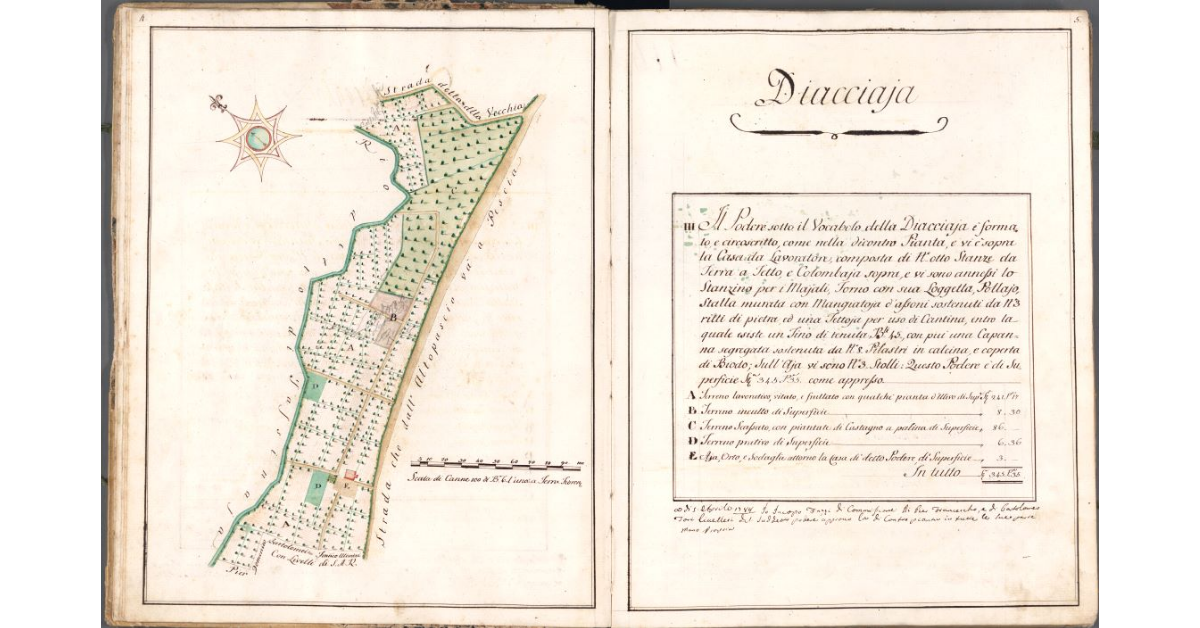 4
Strada detta della Vecchia
Rio
Strada che dall'Altopascio va a Pescia
A
C
B
A
D
D
E
A
10 20 30 40 50 60 70 80 90 100
Scala di Canne 100 di Ba 6 l'una a Terra
Con Livelli di S.A.R.
Pier
5
Diacciaja
III Il Podere sotto il Vocabolo della Diacciaja è forma-
to, e circoscritto, come nella dicontro Pianta, e vi è sopra
la Casa da Lavoratori, composta di No otto Stanze da
Terra a Tetto, e Colombaja sopra, e vi sono annessi lo
Stanzino per i Majali, Forno con sua Loggetta, Pollajo,
Stalla murata con Mangiatoja d'assoni sostenuti da No 3
ritti di pietra, ed una Tettoja per uso di Cantina, entro la-
quale esiste un Tino di tenuta Bli 45, con pui una Capan-
na segregata sostenuta da No 8 Pilastri in calcina, e coperta
di Biodo; Sull'Aja vi sono No 3. Stolli: Questo Podere è di Su-
perficie Sa 343.Pe 35. come appresso.
A Terreno lavorativo, vitato, e fruttato con qualche pianta d'Ulivo di Supe Sa 241.Pe 17
B Terreno incolto di Superficie 8. 30
C Terreno Scassato, con piantate di Castagno a palina di Superficie 86. —
D Terreno prativo di Superficie 6. 36
E Aja, Orto, e Sodaglia attorno la Casa di detto Podere di Superficie 3. —
In tutto Sa 343.Pe 35.